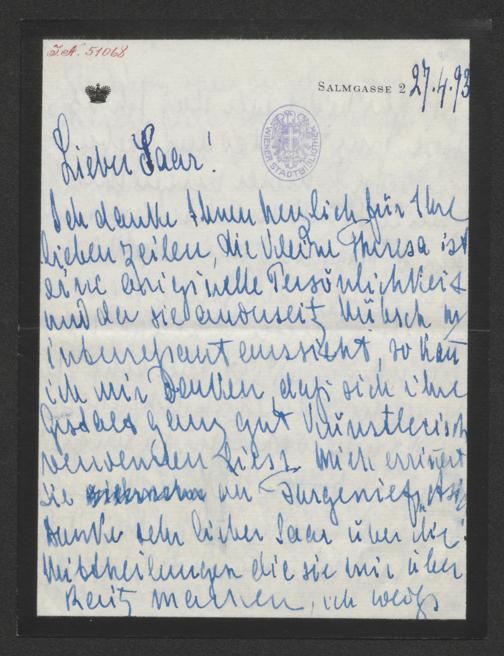 I.N. 51068
SALMGASSE 2 27.4.93
WIENER STADTBIBLIOTHEK
Lieber Saar!
Ich danke Ihnen herzlich für Ihre
lieben Zeilen, die kleine Theresa ist
eine originelle Persönlichkeit
und da sie anderseits hübsch u
interessant aussieht, so kan
ich mir denken, daß sich ihre
Gestalt ganz gut künstlerisch
verwenden liesz. Mich erinnert
sie an Turgenief's
danke sehr lieber Saar über die
Mittheilungen die sie mir über
machen, ich weiß